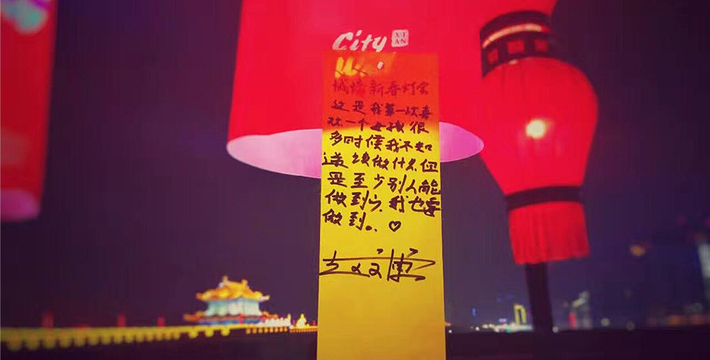 City XI AN
城墙新春灯会
这是我第一次喜
欢一个女孩很
多时候我不知
道该做什么但
是至少别人能
做到的,我也要
做到。♡